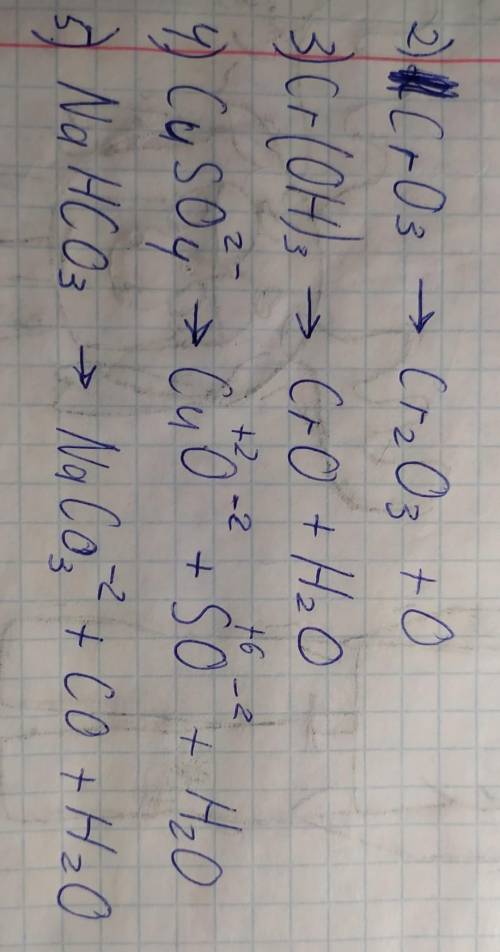 2) CrO₃ → Cr₂O₃ + O
3) Cr(OH)₃ → CrO + H₂O
4) CuSO₄²⁻ → CuO⁺²₋₂ + SO⁺⁶₋₂ + H₂O
5) NaHCO₃ → NaCO₃⁻² + CO + H₂O